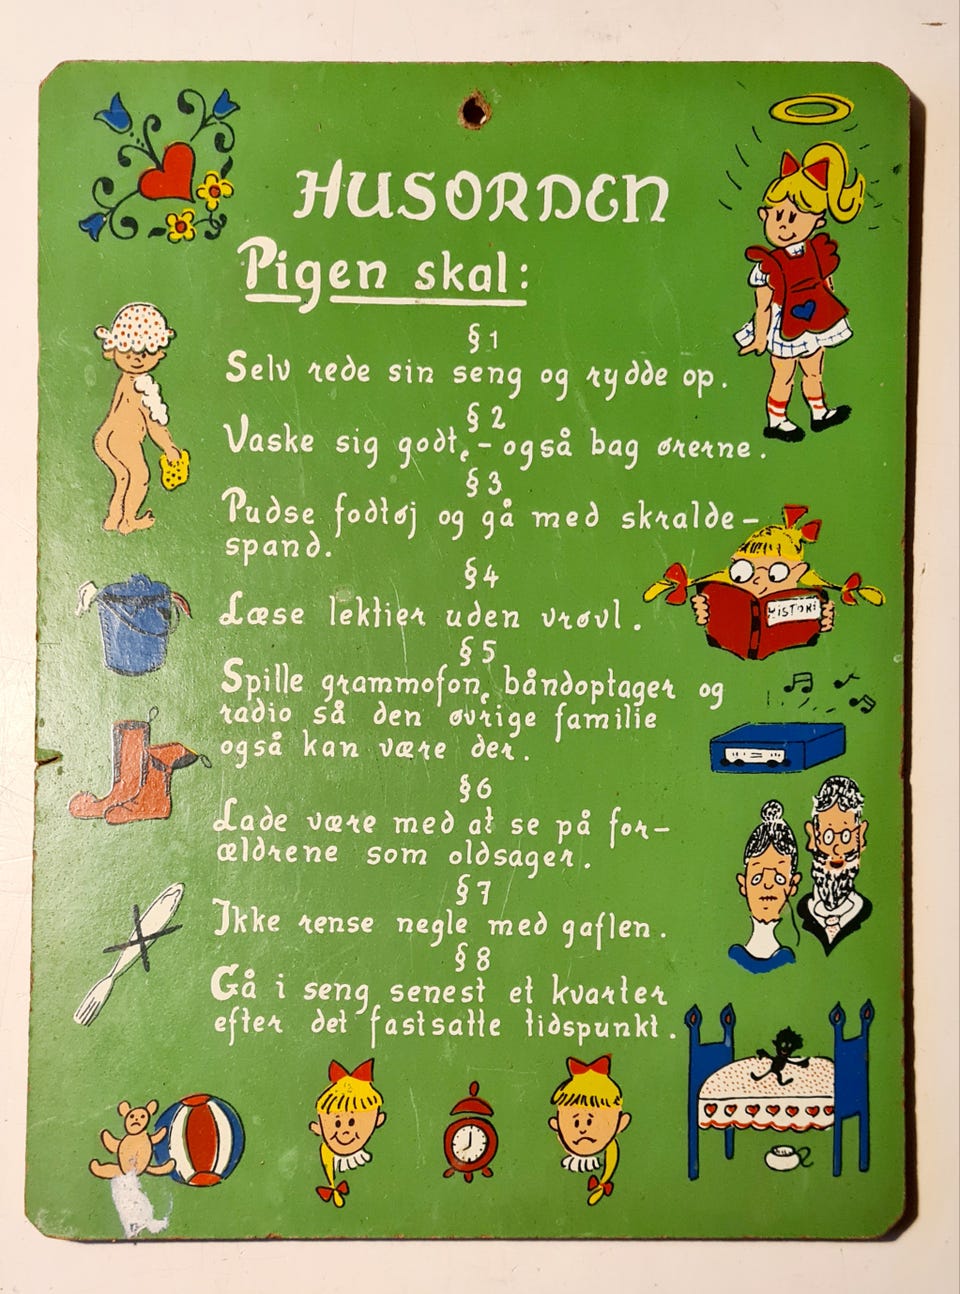 HUSORDEN
Pigen skal:
§ 1
Selv rede sin seng og rydde op.
§ 2
Vaske sig godt, - også bag ørerne.
§ 3
Pudse fodtøj og gå med skralde-
spand.
§ 4
Læse lektier uden vrøvl.
HISTORI
§ 5
Spille grammofon, båndoptager og
radio så den øvrige familie
også kan være der.
§ 6
Lade være med at se på for-
ældrene som oldsager.
§ 7
Ikke rense negle med gaflen.
§ 8
Gå i seng senest et kvarter
efter det fastsatte tidspunkt.